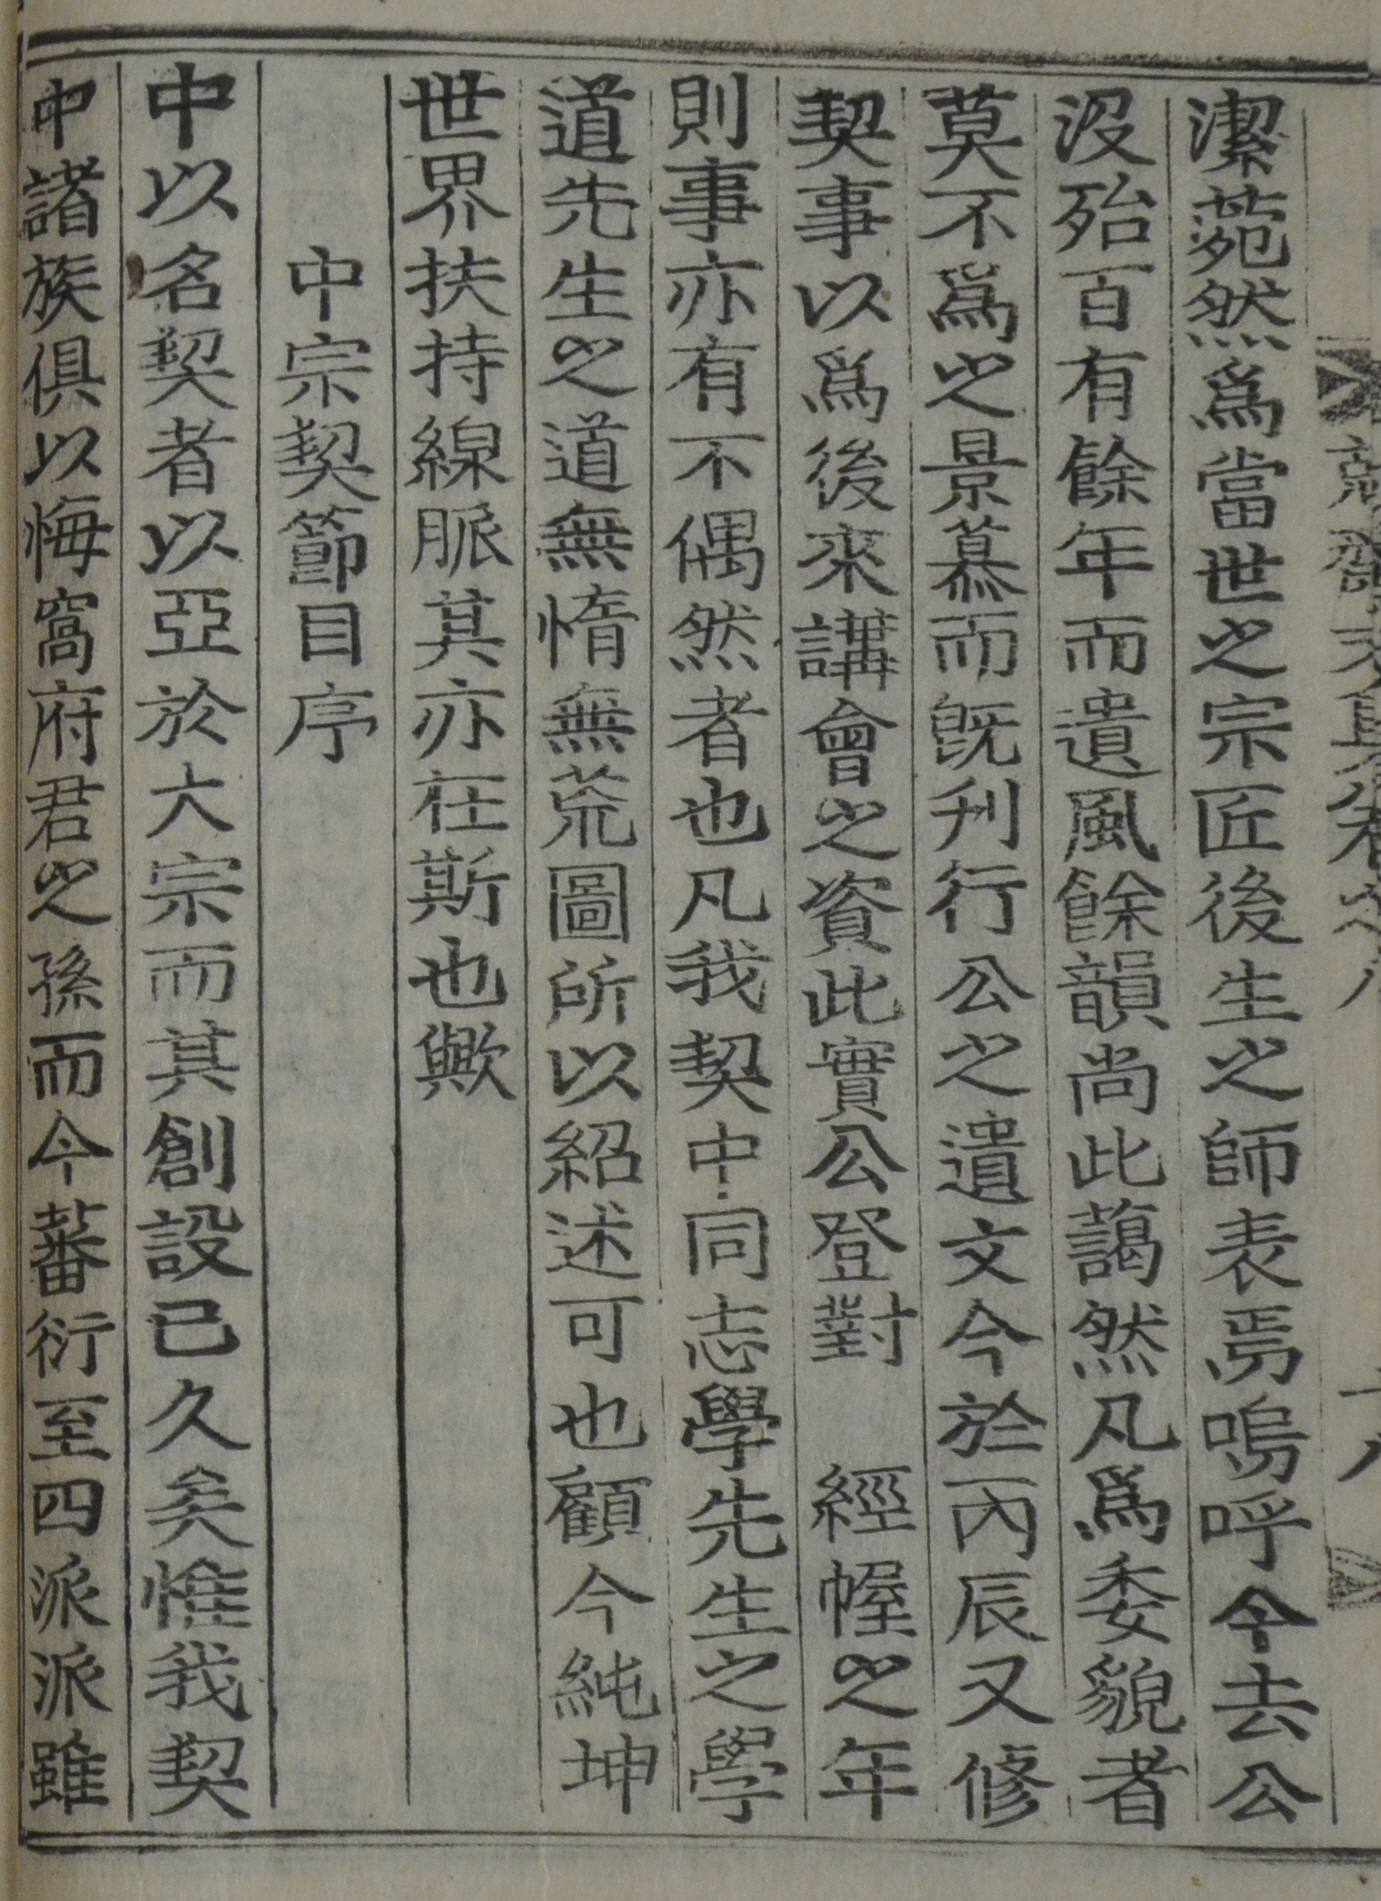 潔菀然爲當世之宗匠後生之師表焉嗚呼今去公
沒殆百有餘年而遺風餘韻尙此藹然凡爲委貌者
莫不爲之景慕而旣刊行公之遺文今於丙辰又修
契事以爲後來講會之資此實公登對　經幄之年
則事亦有不偶然者也凡我契中同志學先生之學
道先生之道無惰無荒圖所以紹述可也顧今純坤
世界扶持線脈其亦在斯也歟
中宗契節目序
中以名契者以亞於大宗而其創設已久矣惟我契
中諸族俱以悔窩府君之孫而今蕃衍至四派派雖